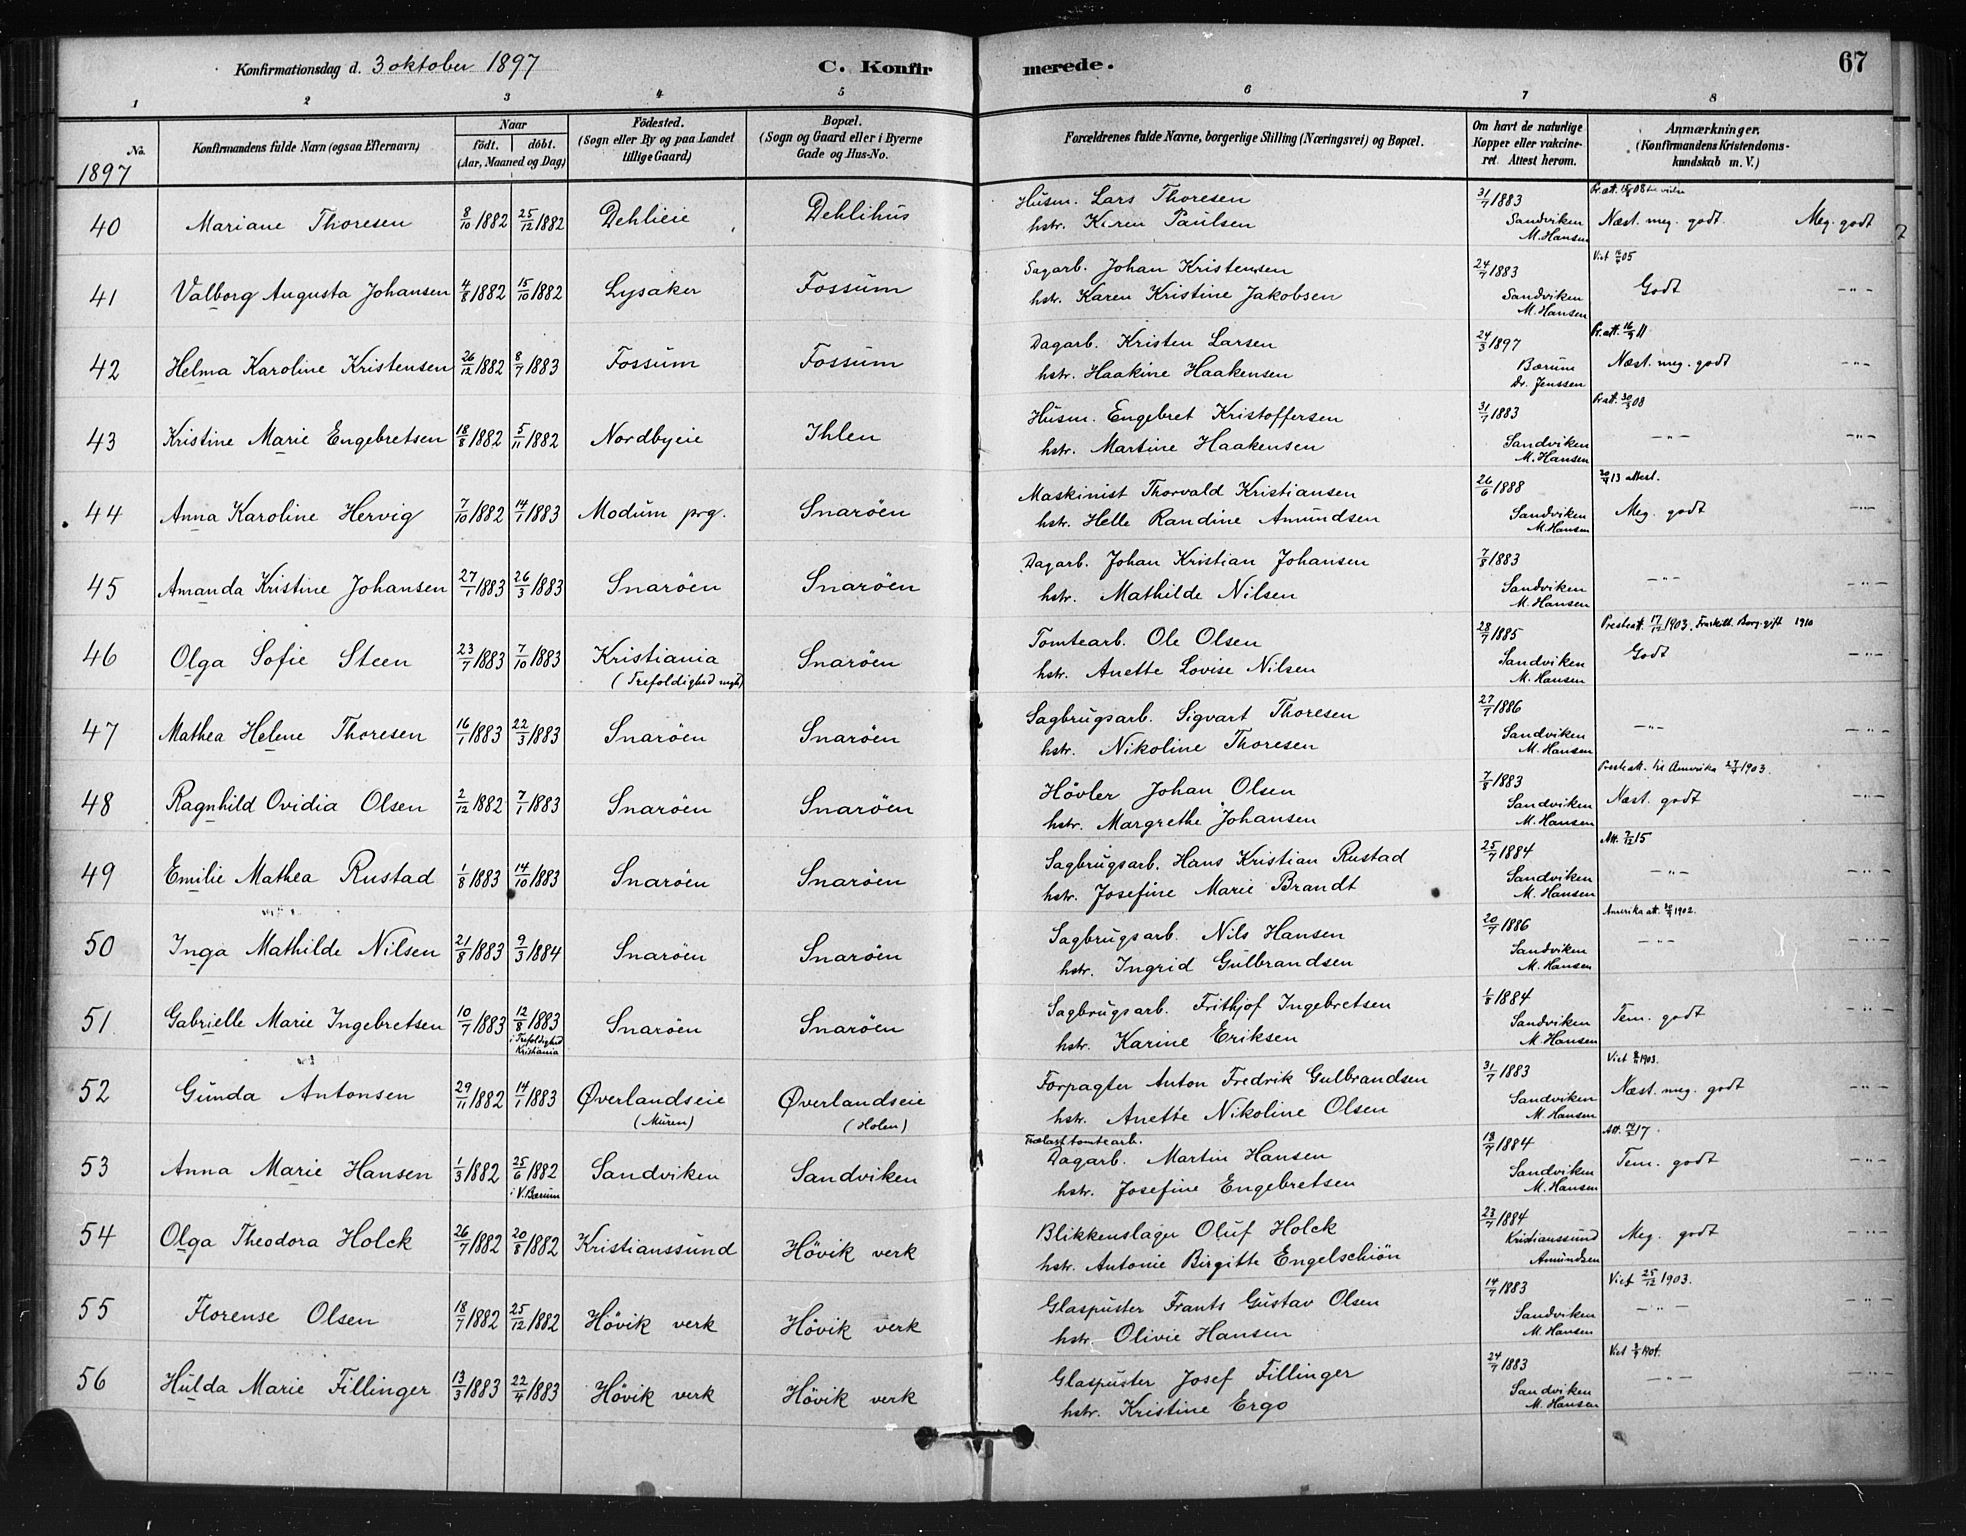 Konfirmationsdag d. 3 oktober 1897 C. Konfirmerede. 67
1 2 3 4 5 6 7 8
No. Konfirmandens fulde Navn (ogsaa Efternavn) Naar født. døbt. (Aar, Maaned og Dag) Fødested. (Sogn eller By og paa Landet tillige Gaard) Bopæl. (Sogn og Gaard eller i Byerne Gade og Hus-No. Forældrenes fulde Navne, borgerlige Stilling (Næringsvei) og Bopæl. Om havt de naturlige Kopper eller vakcineret. Attest herom. Anmærkninger. (Konfirmandens Kristendomskundskab m. V.)
1897
40 Mariane Thoresen 8/10 1882 25/12 1882 Dehlieie Dehlihus Husm. Lars Thoresen 31/7 1883
hstr. Karen Paulsen Sandviken M. Hansen Næst. meg. godt. Meg. godt
41 Valborg Augusta Johansen 4/8 1882 15/10 1882 Lysaker Fossum Sagarb. Johan Kristensen 24/7 1883
hstr. Karen Kristine Jakobsen Sandviken M. Hansen Godt -"-
42 Helma Karoline Kristensen 26/12 1882 8/7 1883 Fossum Fossum Dagarb. Kristen Larsen 24/3 1897 Pr. att. 16/9 11
hstr. Haakine Haakensen Bærum Dr. Jenssen Næst. meg. godt -"-
43 Kristine Marie Engebretsen 18/8 1882 5/11 1882 Nordbyeie Ihlen Husm. Engebret Kristoffersen 31/7 1883
hstr. Martine Haakensen Sandviken M. Hansen -"- -"-
44 Anna Karoline Hervig 7/10 1882 14/1 1883 Modum prg. Snarøen Maskinist Thorvald Kristiansen 26/6 1888 attest.
hstr. Helle Randine Amundsen Sandviken M. Hansen Meg. godt -"-
45 Amanda Kristine Johansen 27/1 1883 26/3 1883 Snarøen Snarøen Dagarb. Johan Kristian Johansen 7/8 1883
hstr. Mathilde Nilsen Sandviken M. Hansen -"- -"-
46 Olga Sofie Steen 23/7 1883 7/10 1883 Kristiania Snarøen Tomtearb. Ole Olsen 28/7 1885 Presteatt. 17/12 1903. 1910
hstr. Anette Lovise Nilsen Sandviken M. Hansen Godt -"-
47 Mathea Helene Thoresen 16/1 1883 22/3 1883 Snarøen Snarøen Sagbrugsarb. Sigvart Thoresen 27/7 1886
hstr. Nikoline Thoresen Sandviken M. Hansen -"- -"-
48 Ragnhild Ovidia Olsen 2/12 1882 7/1 1883 Snarøen Snarøen Høvler Johan Olsen 7/8 1883 Presteatt. til Amerika 1903.
hstr. Margrethe Johansen Sandviken M. Hansen Næst. godt -"-
49 Emilie Mathea Rustad 1/8 1883 14/10 1883 Snarøen Snarøen Sagbrugsarb. Hans Kristian Rustad 25/7 1884
hstr. Josefine Marie Brandt Sandviken M. Hansen -"- -"-
50 Inga Mathilde Nilsen 21/8 1883 9/3 1884 Snarøen Snarøen Sagbrugsarb. Nils Hansen 20/7 1886 Amerika att. 1902.
hstr. Ingrid Gulbrandsen Sandviken M. Hansen -"- -"-
51 Gabrielle Marie Ingebretsen 10/7 1883 12/8 1883 i Trefoldighed Kristiania Snarøen Snarøen Sagbrugsarb. Frithjof Ingebretsen 1/8 1884
hstr. Karine Eriksen Sandviken M. Hansen Tem. godt -"-
52 Gunda Antonsen 29/11 1882 14/1 1883 Øverlandseie (Muren) Øverlandseie (Holen) Forpagter Anton Fredrik Gulbrandsen 31/7 1883 1903.
hstr. Anette Nikoline Olsen Sandviken M. Hansen Næst. meg. godt -"-
Trælasttomtearb.
53 Anna Marie Hansen 1/3 1882 25/6 1882 i V. Bærum Sandviken Sandviken Dagarb. Martin Hansen 18/7 1884
hstr. Josefine Engebretsen Sandviken M. Hansen Tem. godt -"-
54 Olga Theodora Holck 26/7 1882 20/8 1882 Kristianssund Høvik verk Blikkenslager Oluf Holck 23/7 1884
hstr. Antonie Birgitte Engelschiön Kristianssund Amundsen Meg. godt -"-
55 Florense Olsen 18/7 1882 25/12 1882 Høvik verk Høvik verk Glaspuster Frants Gustav Olsen 14/7 1883 Viet 25/12 1903.
hstr. Olivie Hansen Sandviken M. Hansen -"- -"-
56 Hulda Marie Fillinger 13/3 1883 22/4 1883 Høvik verk Høvik verk Glaspuster Josef Fillinger 24/7 1883
hstr. Kristine Ergo Sandviken M. Hansen -"- -"-